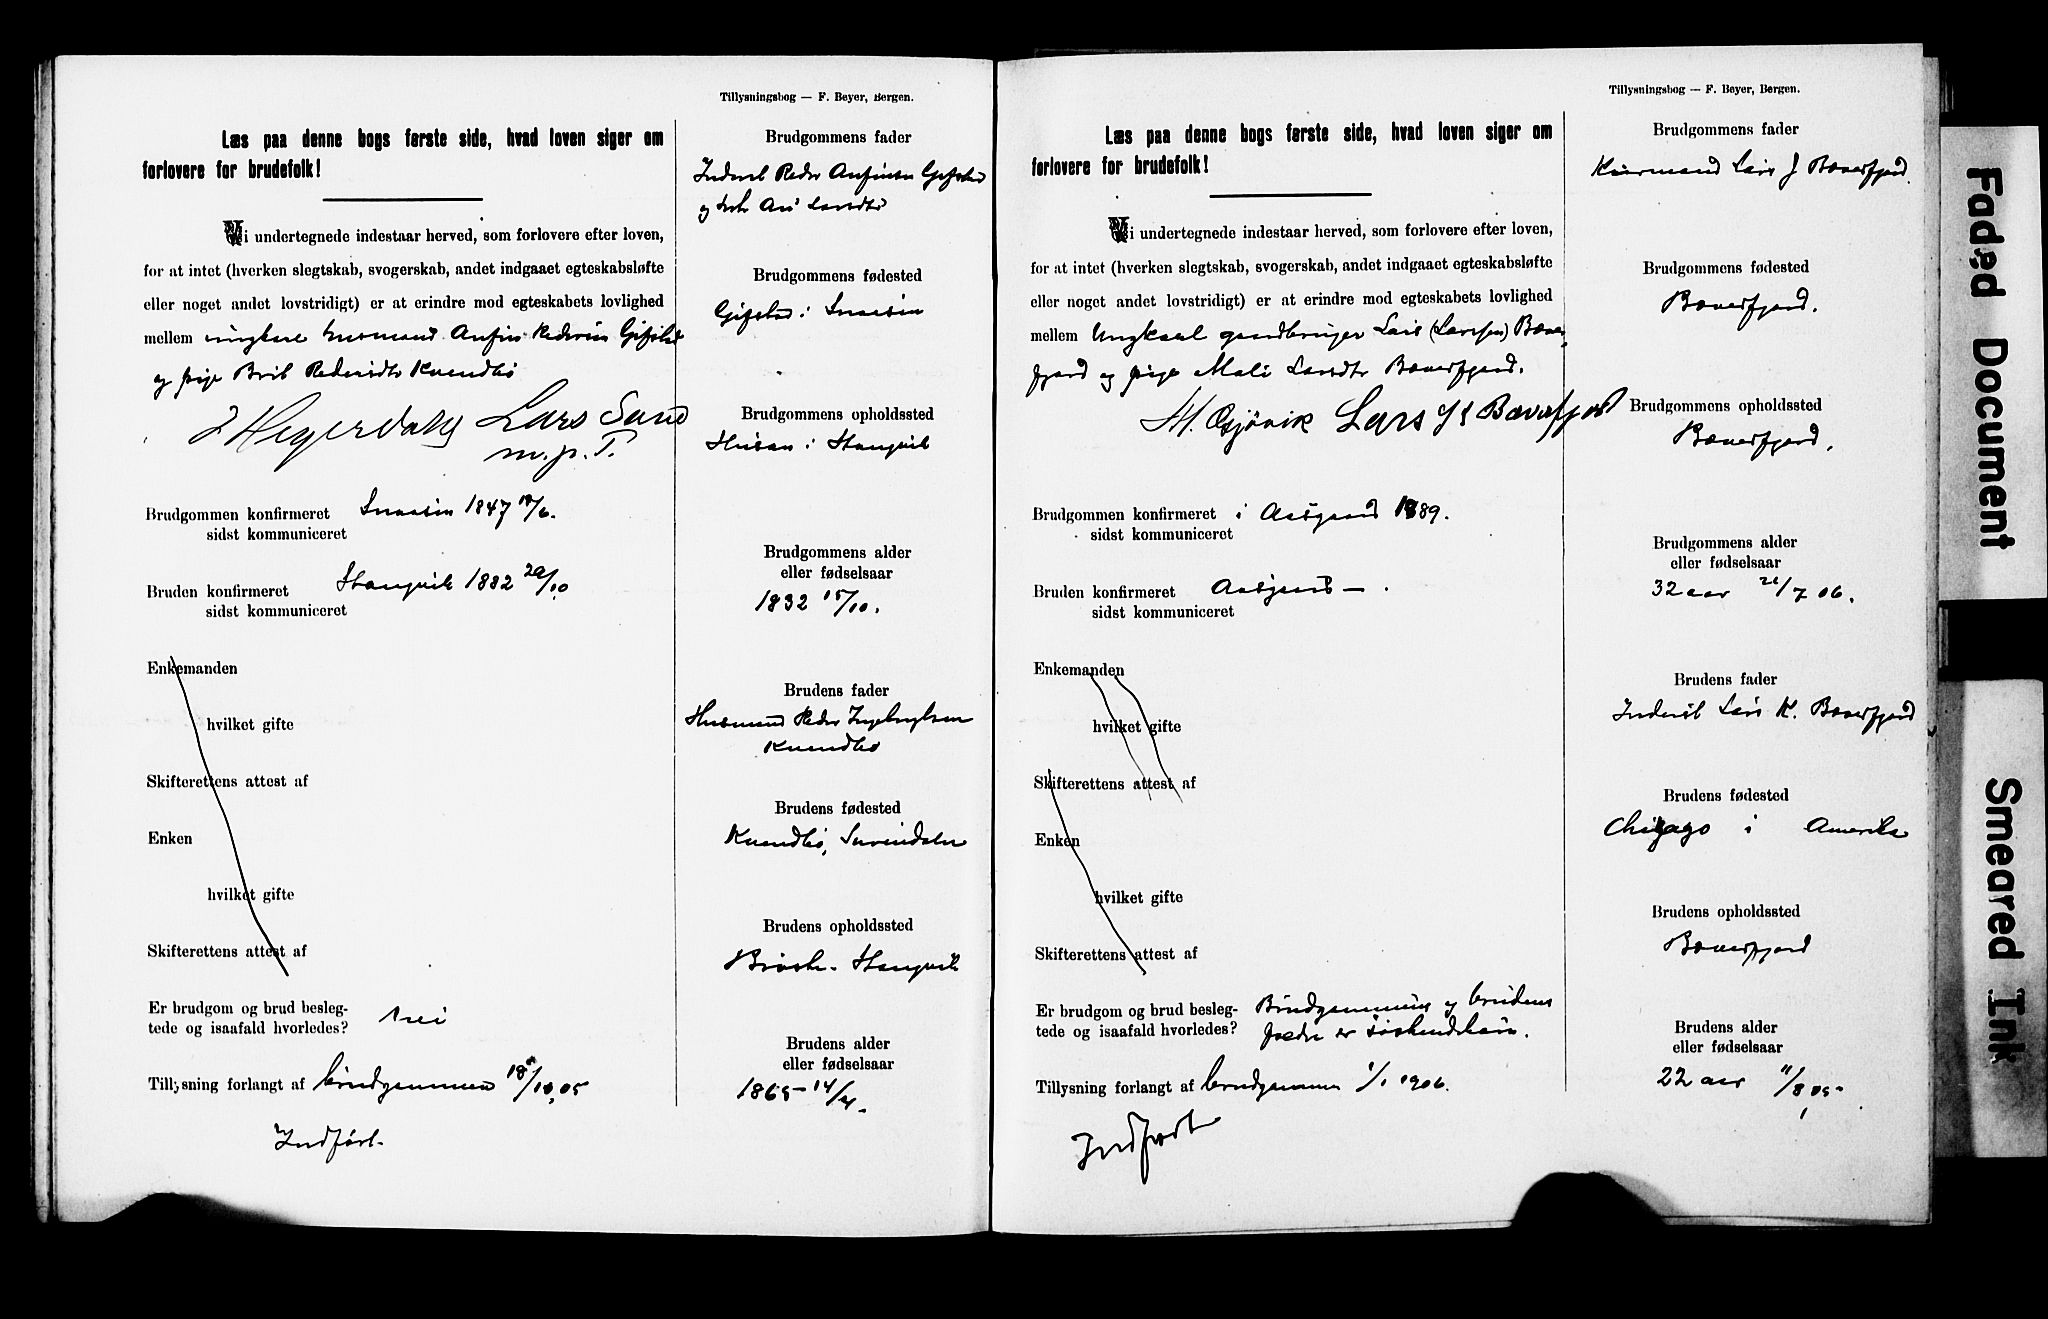 Tillysningsbog — F. Beyer, Bergen.
Læs paa denne bogs første side, hvad loven siger om
forlovere for brudefolk!
Vi undertegnede indestaar herved, som forlovere efter loven,
for at intet (hverken slegtskab, svogerskab, andet indgaaet egteskabsløfte
eller noget andet lovstridigt) er at erindre mod egteskabets lovlighed
mellem ungkarl husmand Anfin Gifstad
og pige Brit Kvendbø
Hegerdahl Lars Sand
m.p.T.
Brudgommen konfirmeret Snaasen 1847
sidst kommuniceret
Bruden konfirmeret Stangvik 1882 29/10
sidst kommuniceret
Enkemanden
hvilket gifte
Skifterettens attest af
Enken
hvilket gifte
Skifterettens attest af
Er brudgom og brud besleg-
tede og isaafald hvorledes? Nei
Tillysning forlangt af brudgommen 18/10 05
Indført
Brudgommens fader
Inderst Peder Anfinsen Gifstad
og
Brudgommens fødested
Gifstad i Snaasen
Brudgommens opholdssted
i Stangvik
Brudgommens alder
eller fødselsaar
1832 15/10.
Brudens fader
Husmand Peder Ingebrigtsen
Kvendbø
Brudens fødested
Kvendbø, Surendalen
Brudens opholdssted
Brøske Stangvik
Brudens alder
eller fødselsaar
1865 14/4.
Tillysningsbog — F. Beyer, Bergen.
Læs paa denne bogs første side, hvad loven siger om
forlovere for brudefolk!
Vi undertegnede indestaar herved, som forlovere efter loven,
for at intet (hverken slegtskab, svogerskab, andet indgaaet egteskabsløfte
eller noget andet lovstridigt) er at erindre mod egteskabets lovlighed
mellem Ungkarl gaardbruger Lars (Larssen) Bæver-
fjord og pige Mali Larsdtr Bæverfjord.
M. Gjøvik Lars Bæverfjord
Brudgommen konfirmeret i Aasgaard 1889.
sidst kommuniceret
Bruden konfirmeret Aasgaard — .
sidst kommuniceret
Enkemanden
hvilket gifte
Skifterettens attest af
Enken
hvilket gifte
Skifterettens attest af
Er brudgom og brud besleg- Brudgommens og brudens
tede og isaafald hvorledes? fædre er søskendebørn.
Tillysning forlangt af brudgommen 1/1 1906.
Indført
Brudgommens fader
Kaarmand Lars J Bæverfjord.
Brudgommens fødested
Bæverfjord.
Brudgommens opholdssted
Bæverfjord.
Brudgommens alder
eller fødselsaar
32 aar 06.
Brudens fader
Inderst Lars K. Bæverfjord
Brudens fødested
Chicago i Amerika
Brudens opholdssted
Bæverfjord
Brudens alder
eller fødselsaar
22 aar 11/8 05
Faded Document
Smeared Ink